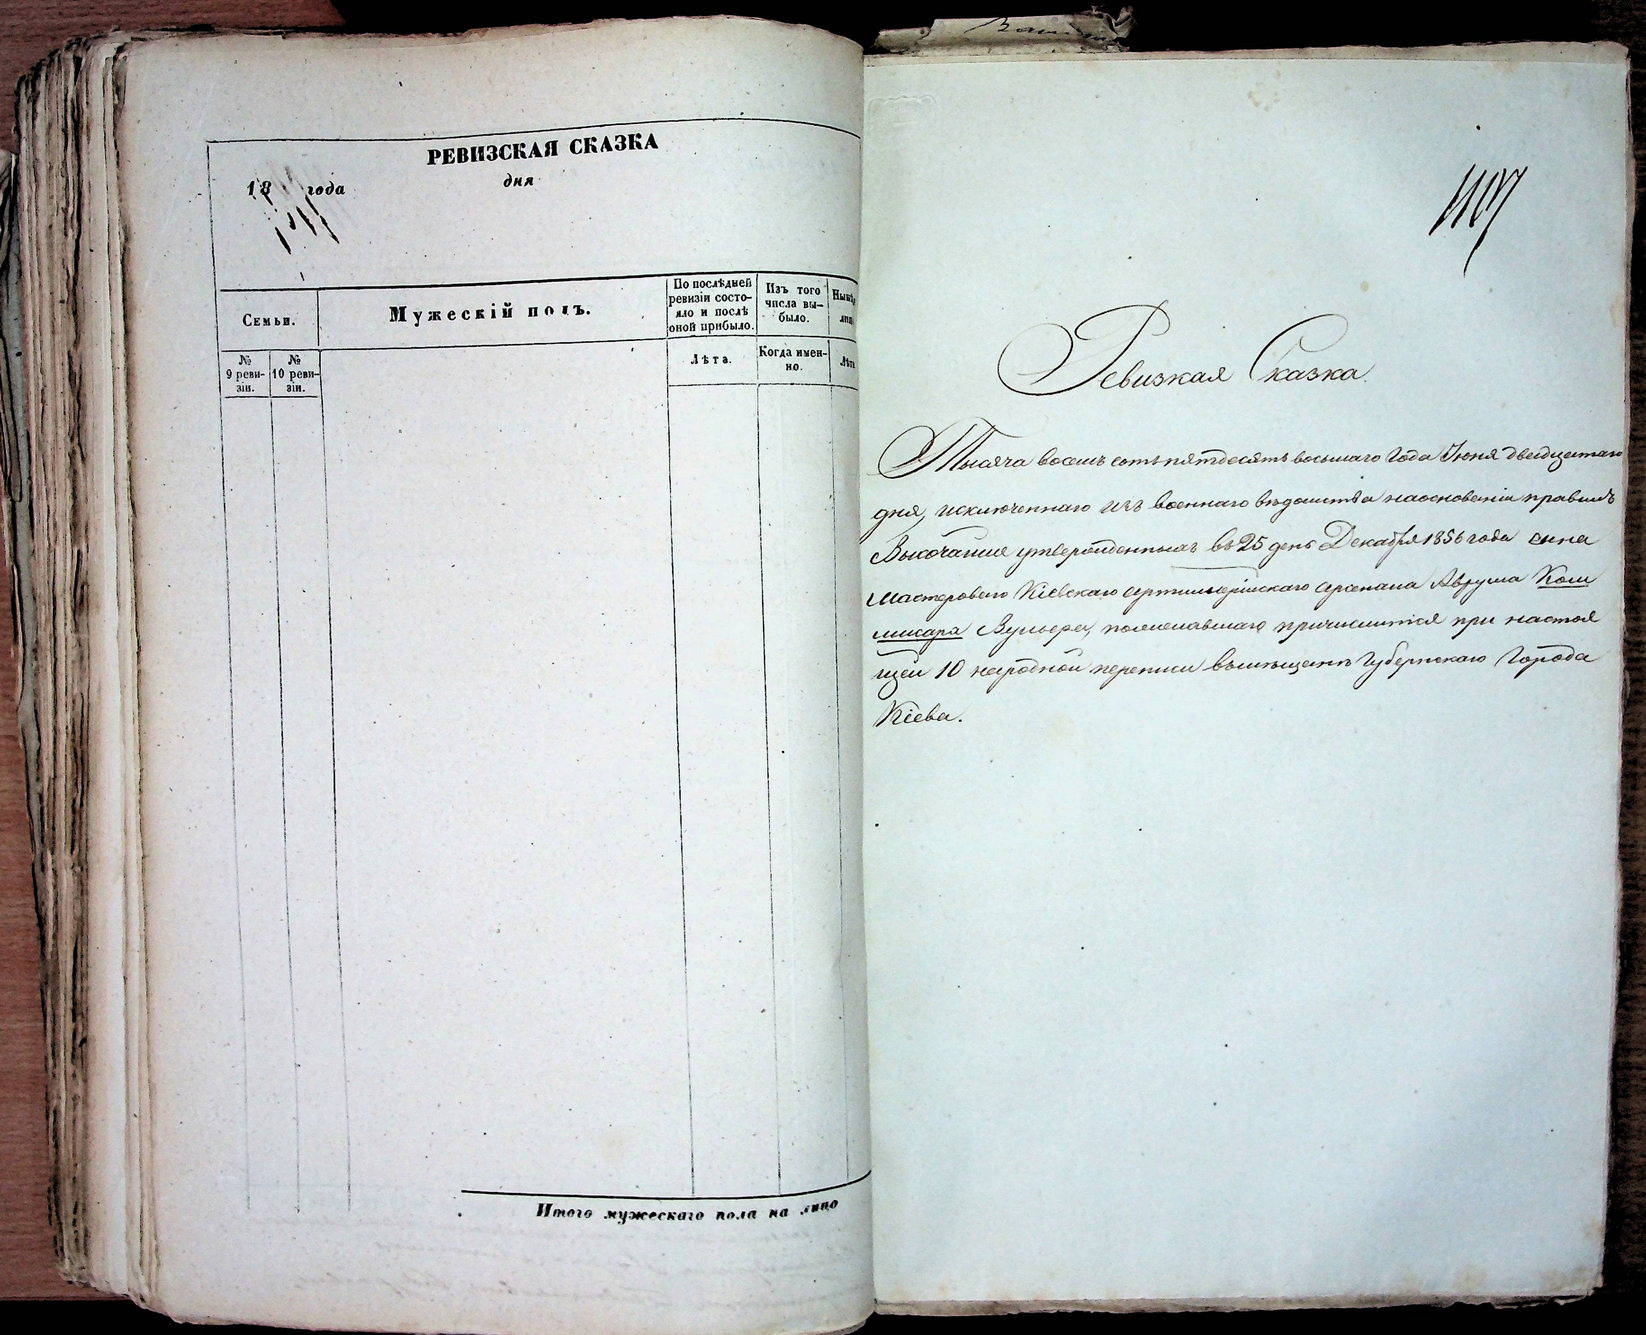 РЕВИЗСКАЯ СКАЗКА
18 года дня
Семьи.
Мужескій полъ.
По послѣдней ревизіи состо-
яло и послѣ
оной прибыло.
Изъ того
числа вы-
было.
Нынѣ
лиц
№
9 реви-
зіи.
№
10 реви-
зіи.
Лѣта.
Когда имен-
но.
Лѣта
Итого мужескаго пола на лицо
1107
Ревизкая Сказка.
Тысяча восемь сотъ пятдесятъ восьмаго года Іюня двадцатаго
дня, исключеннаго изъ военнаго вѣдомства наосновеніи правилъ
Высочайше утвержденныхъ въ 25 день Декабря 1856 года сына
мастероваго Кіевскаго артилерійскаго арсенала Аврума Ком
мисара пожелавшаго причислится при настоя
щей 10 народной переписи вмѣщане Губернскаго Города
Кіева.